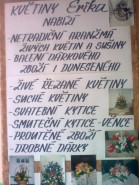 KVĚTINY Erika
NABÍZÍ
-NETRADIČNÍ ARANŽMÁ
ŽIVÝCH KVĚTIN A SUŠINY
-BALENÍ DÁRKOVÉHO
ZBOŽÍ I DONESENÉHO
-ŽIVÉ ŘEZANÉ KVĚTINY
-SUCHÉ KVĚTINY
-SVATEBNÍ KYTICE
-SMUTEČNÍ KYTICE-VĚNCE
-PROUTĚNÉ ZBOŽÍ
-DROBNÉ DÁRKY